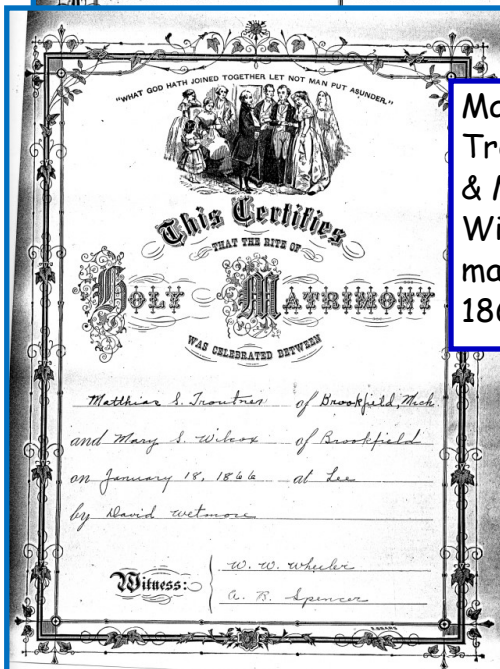 "WHAT GOD HATH JOINED TOGETHER LET NOT MAN PUT ASUNDER."
This Certifies
THAT THE RITE OF
HOLY MATRIMONY
WAS CELEBRATED BETWEEN
Matthias S. Troutner of Brookfield, Mich.
and Mary S. Wilcox of Brookfield
on January 18, 1866 at Lee
by David Wetmore
Witness:
W. W. Wheeler
A. B. Spencer
Ma
Tr
&
Wi
ma
186